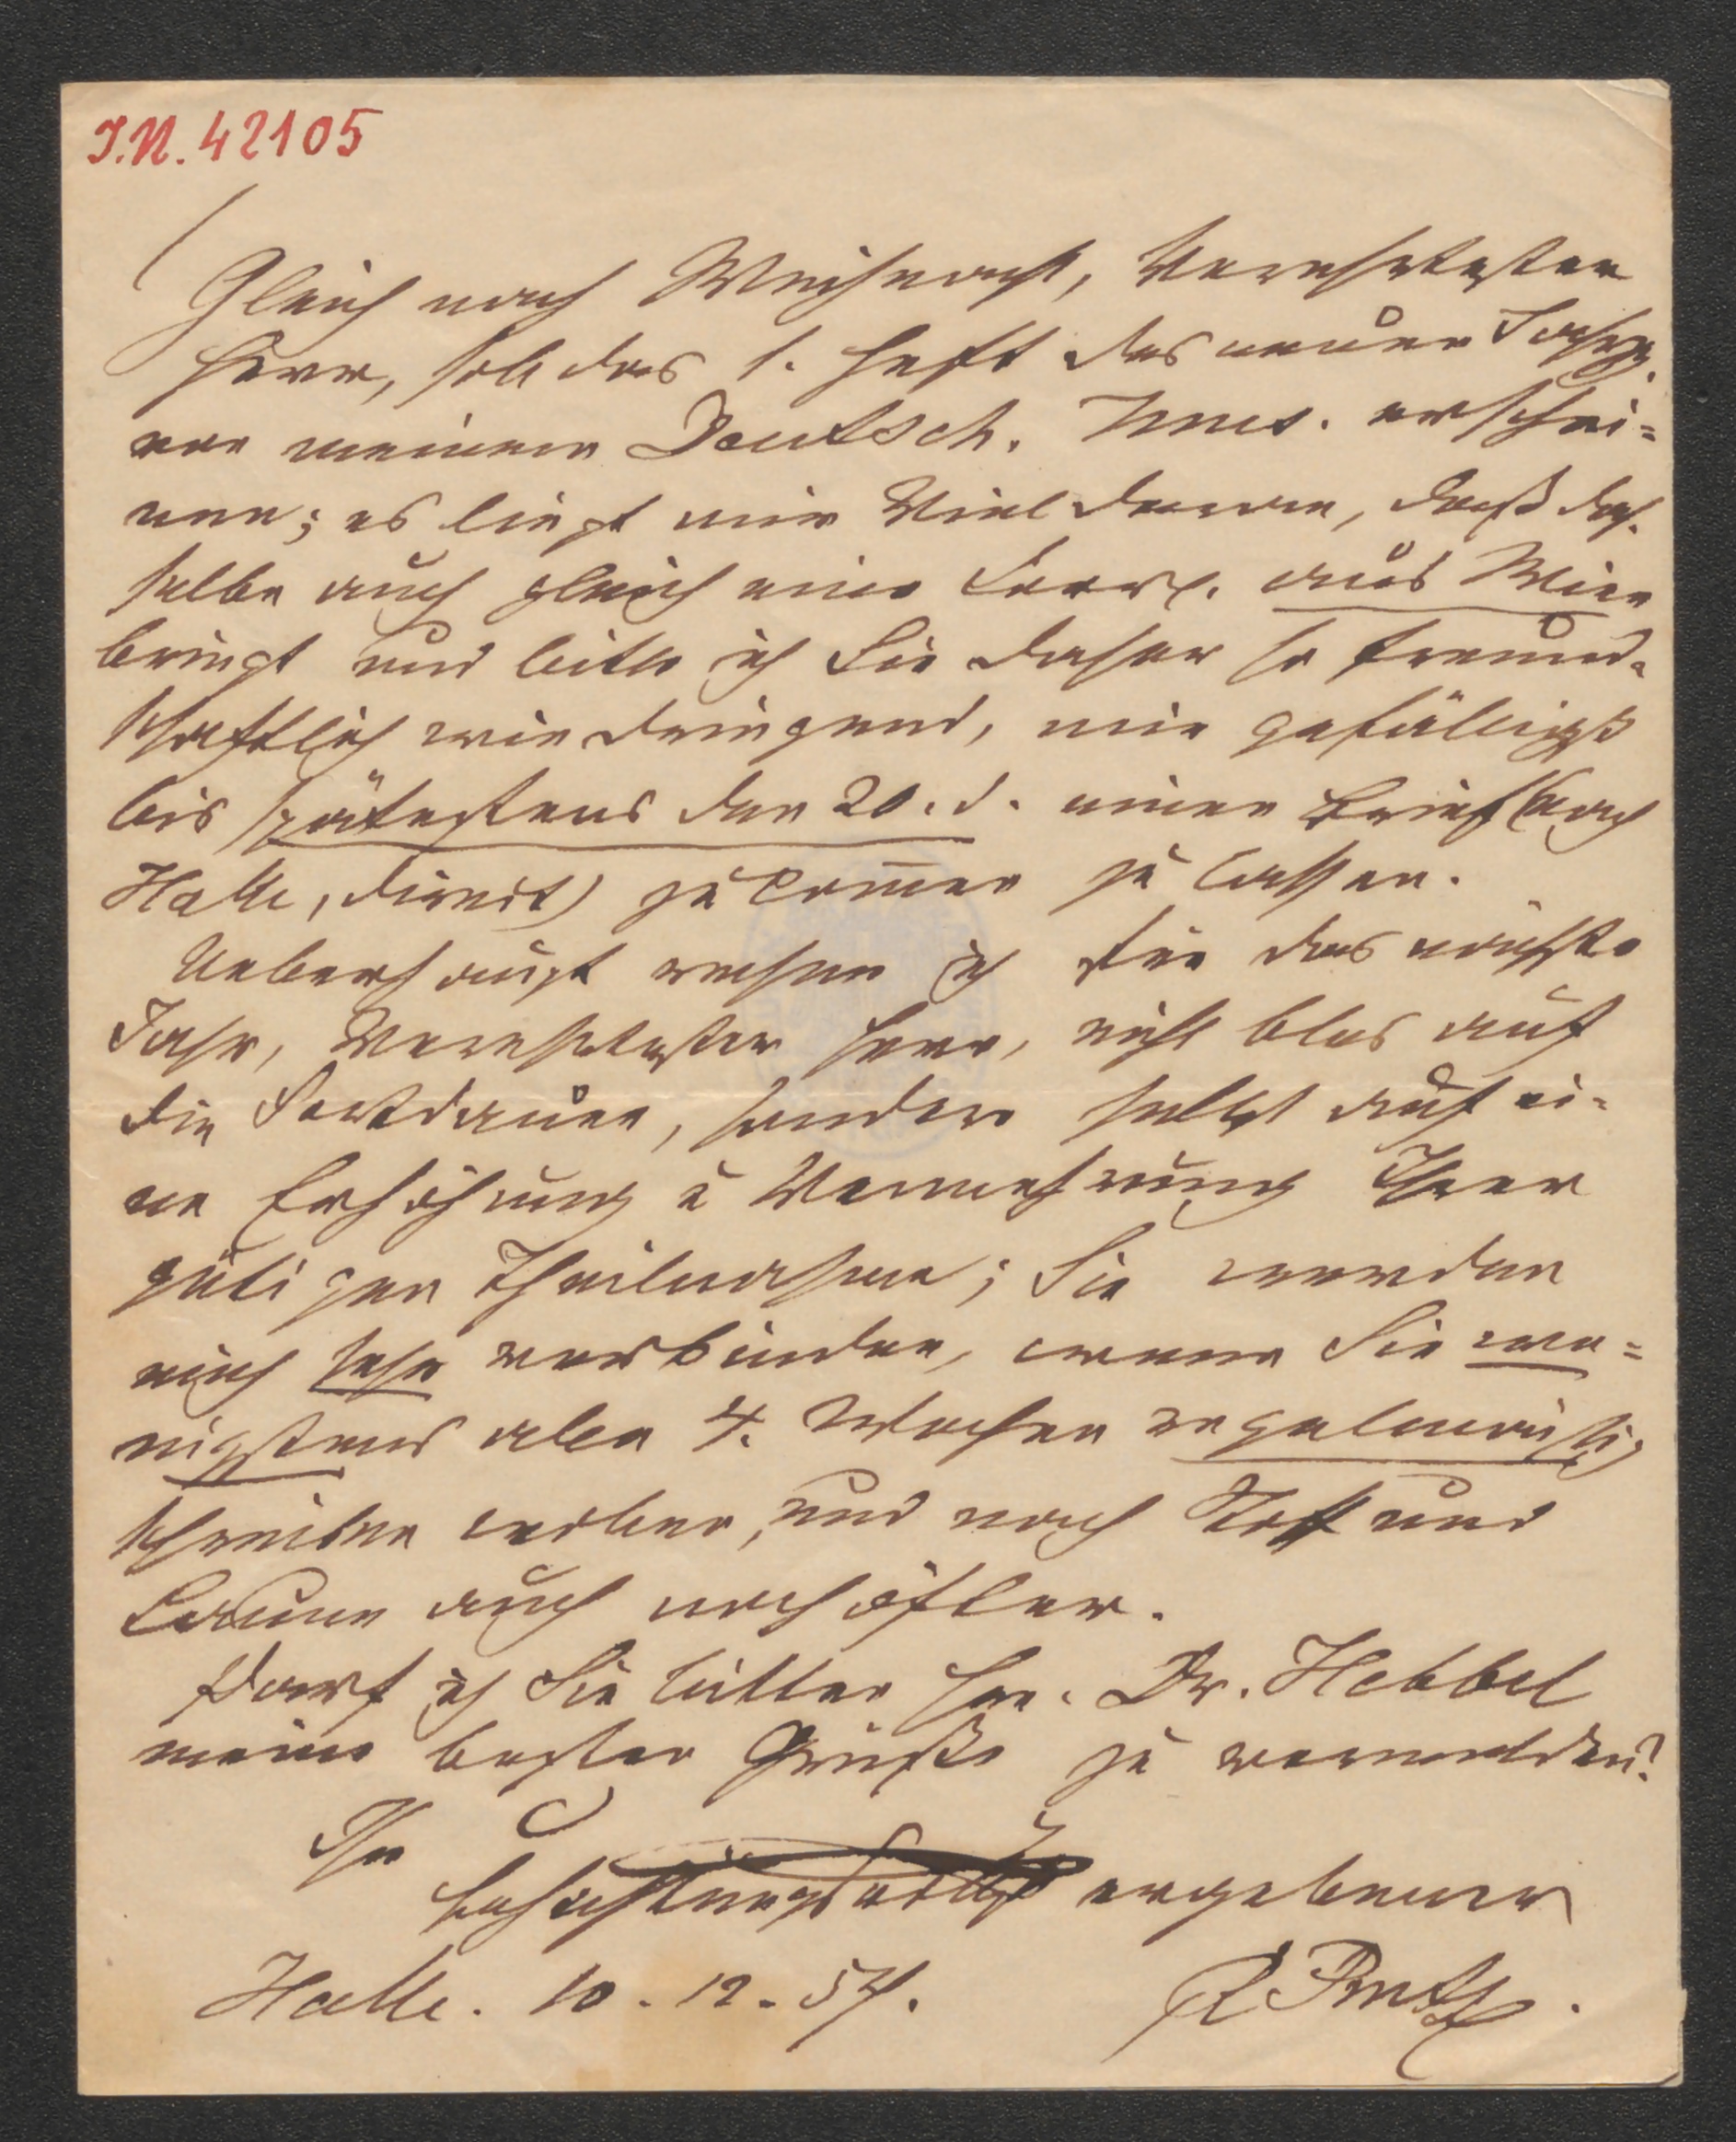 I.N. 42105
Gleich nach Weihnacht, Verehrtester
Herr, soll das 1. Heft des neuen Jahrg.
von meinem Deutsch. Mus. erschei=
nen; es liegt mir Viel daran, daß das=
selbe auch gleich eine Corresp. aus Wien
bringt und bitte ich Sie daher so freund=
schaftlich wie dringend, mir gefälligst
bis spätestens den 20. d. einen Brief (nach
Halle, direct) zukom̅en zu lassen.
Ueberhaupt rechne ich für das nächste
Jahr, Verehrtester Herr, nicht blos auf
die Fortdauer, sondern selbst auf ei=
ne Erhöhung u Vermehrung Ihrer
gütigen Theilnahme; Sie werden
mich sehr verbinden, wenn Sie we=
nigstens alle 4. Wochen regelmäßig
schreiben wollen, und nach Stoff und
Laune auch noch öfter.
Darf ich Sie bitten Hrn. Dr. Hebbel
meine besten Grüße zu vermelden?
Ihr
hochachtungsvollst ergebener
Halle. 10. 12. 57.
R Prutz.